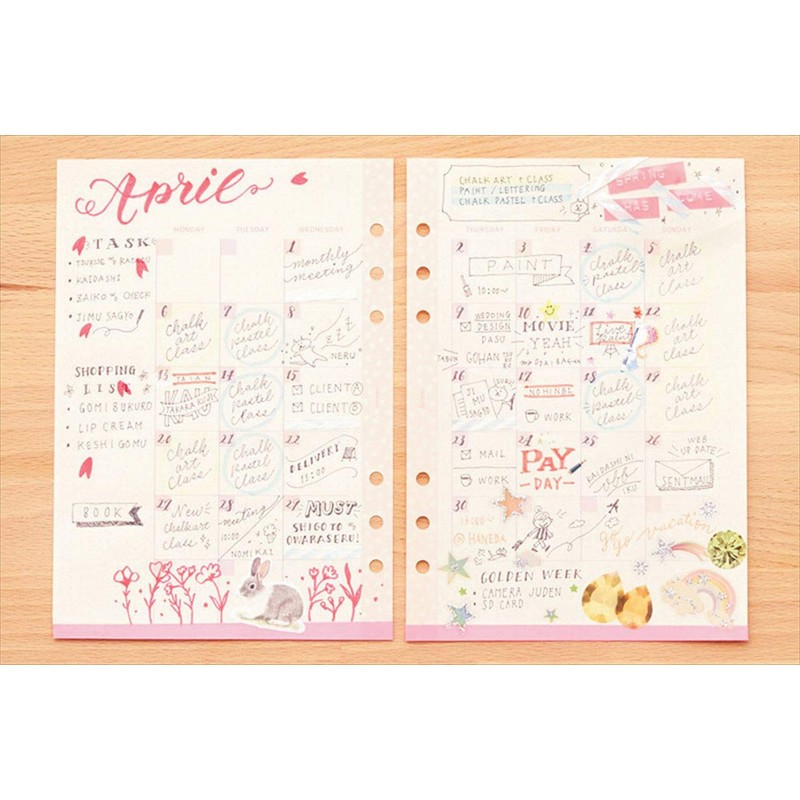 April
TASK
KAIDASHI
ZAIKO CHECK
JIMU SAGYO
SHOPPING
LIST
GOMI BUKURO
LIP CREAM
KESHIGOMU
BOOK
MONDAY TUESDAY WEDNESDAY
1
monthly
meeting
6 7 8
chalk
art
class
chalk
pastel
class
ZZZ
NERU
13 14 15
TAIAN
KAU
TAKARA KUJI
chalk
pastel
class
CLIENT A
CLIENT B
20 21 22
chalk
art
class
chalk
pastel
class
DELIVERY
15:00
27 28 29
New
chalkart
class
meeting
10:00
NOMIKAI
MUST
SHIGOTO
OWARASERU!
CHALK ART + CLASS
PAINT / LETTERING
CHALK PASTEL + CLASS
SPRING
HAS COME
THURSDAY FRIDAY SATURDAY SUNDAY
2 3 4 5
PAINT
10:00~
chalk
pastel
class
chalk
art
class
9 10 11 12
WEDDING
DESIGN
DASU
GOHAN
MOVIE
YEAH
Live
Paint
chalk
art
class
16 17 18 19
JI
MU
SAGYO
NOHINBI
WORK
chalk
pastel
class
chalk
art
class
23 24 25 26
MAIL
WORK
PAY
DAY
KAIDASHI NI
IKU
WEB
UP DATE
SENT MAIL
30
@ HANEDA
go go vacation
GOLDEN WEEK
CAMERA JUDEN
SD CARD